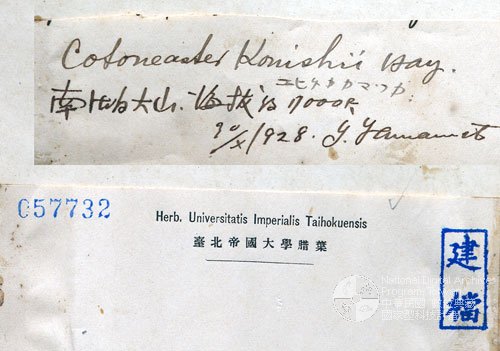 Cotoneaster Konishii Hay.
南湖大山 海拔 7000尺
X/1928. Y. Yamamoto
057732
Herb. Universitatis Imperialis Taihokuensis
臺北帝國大學腊葉
建檔
National Digital Archives
Program, Taiwan